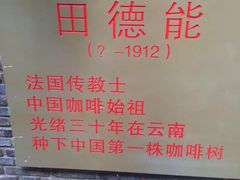 田德能
(？-1912)
法国传教士
中国咖啡始祖
光绪三十年在云南
种下中国第一株咖啡树